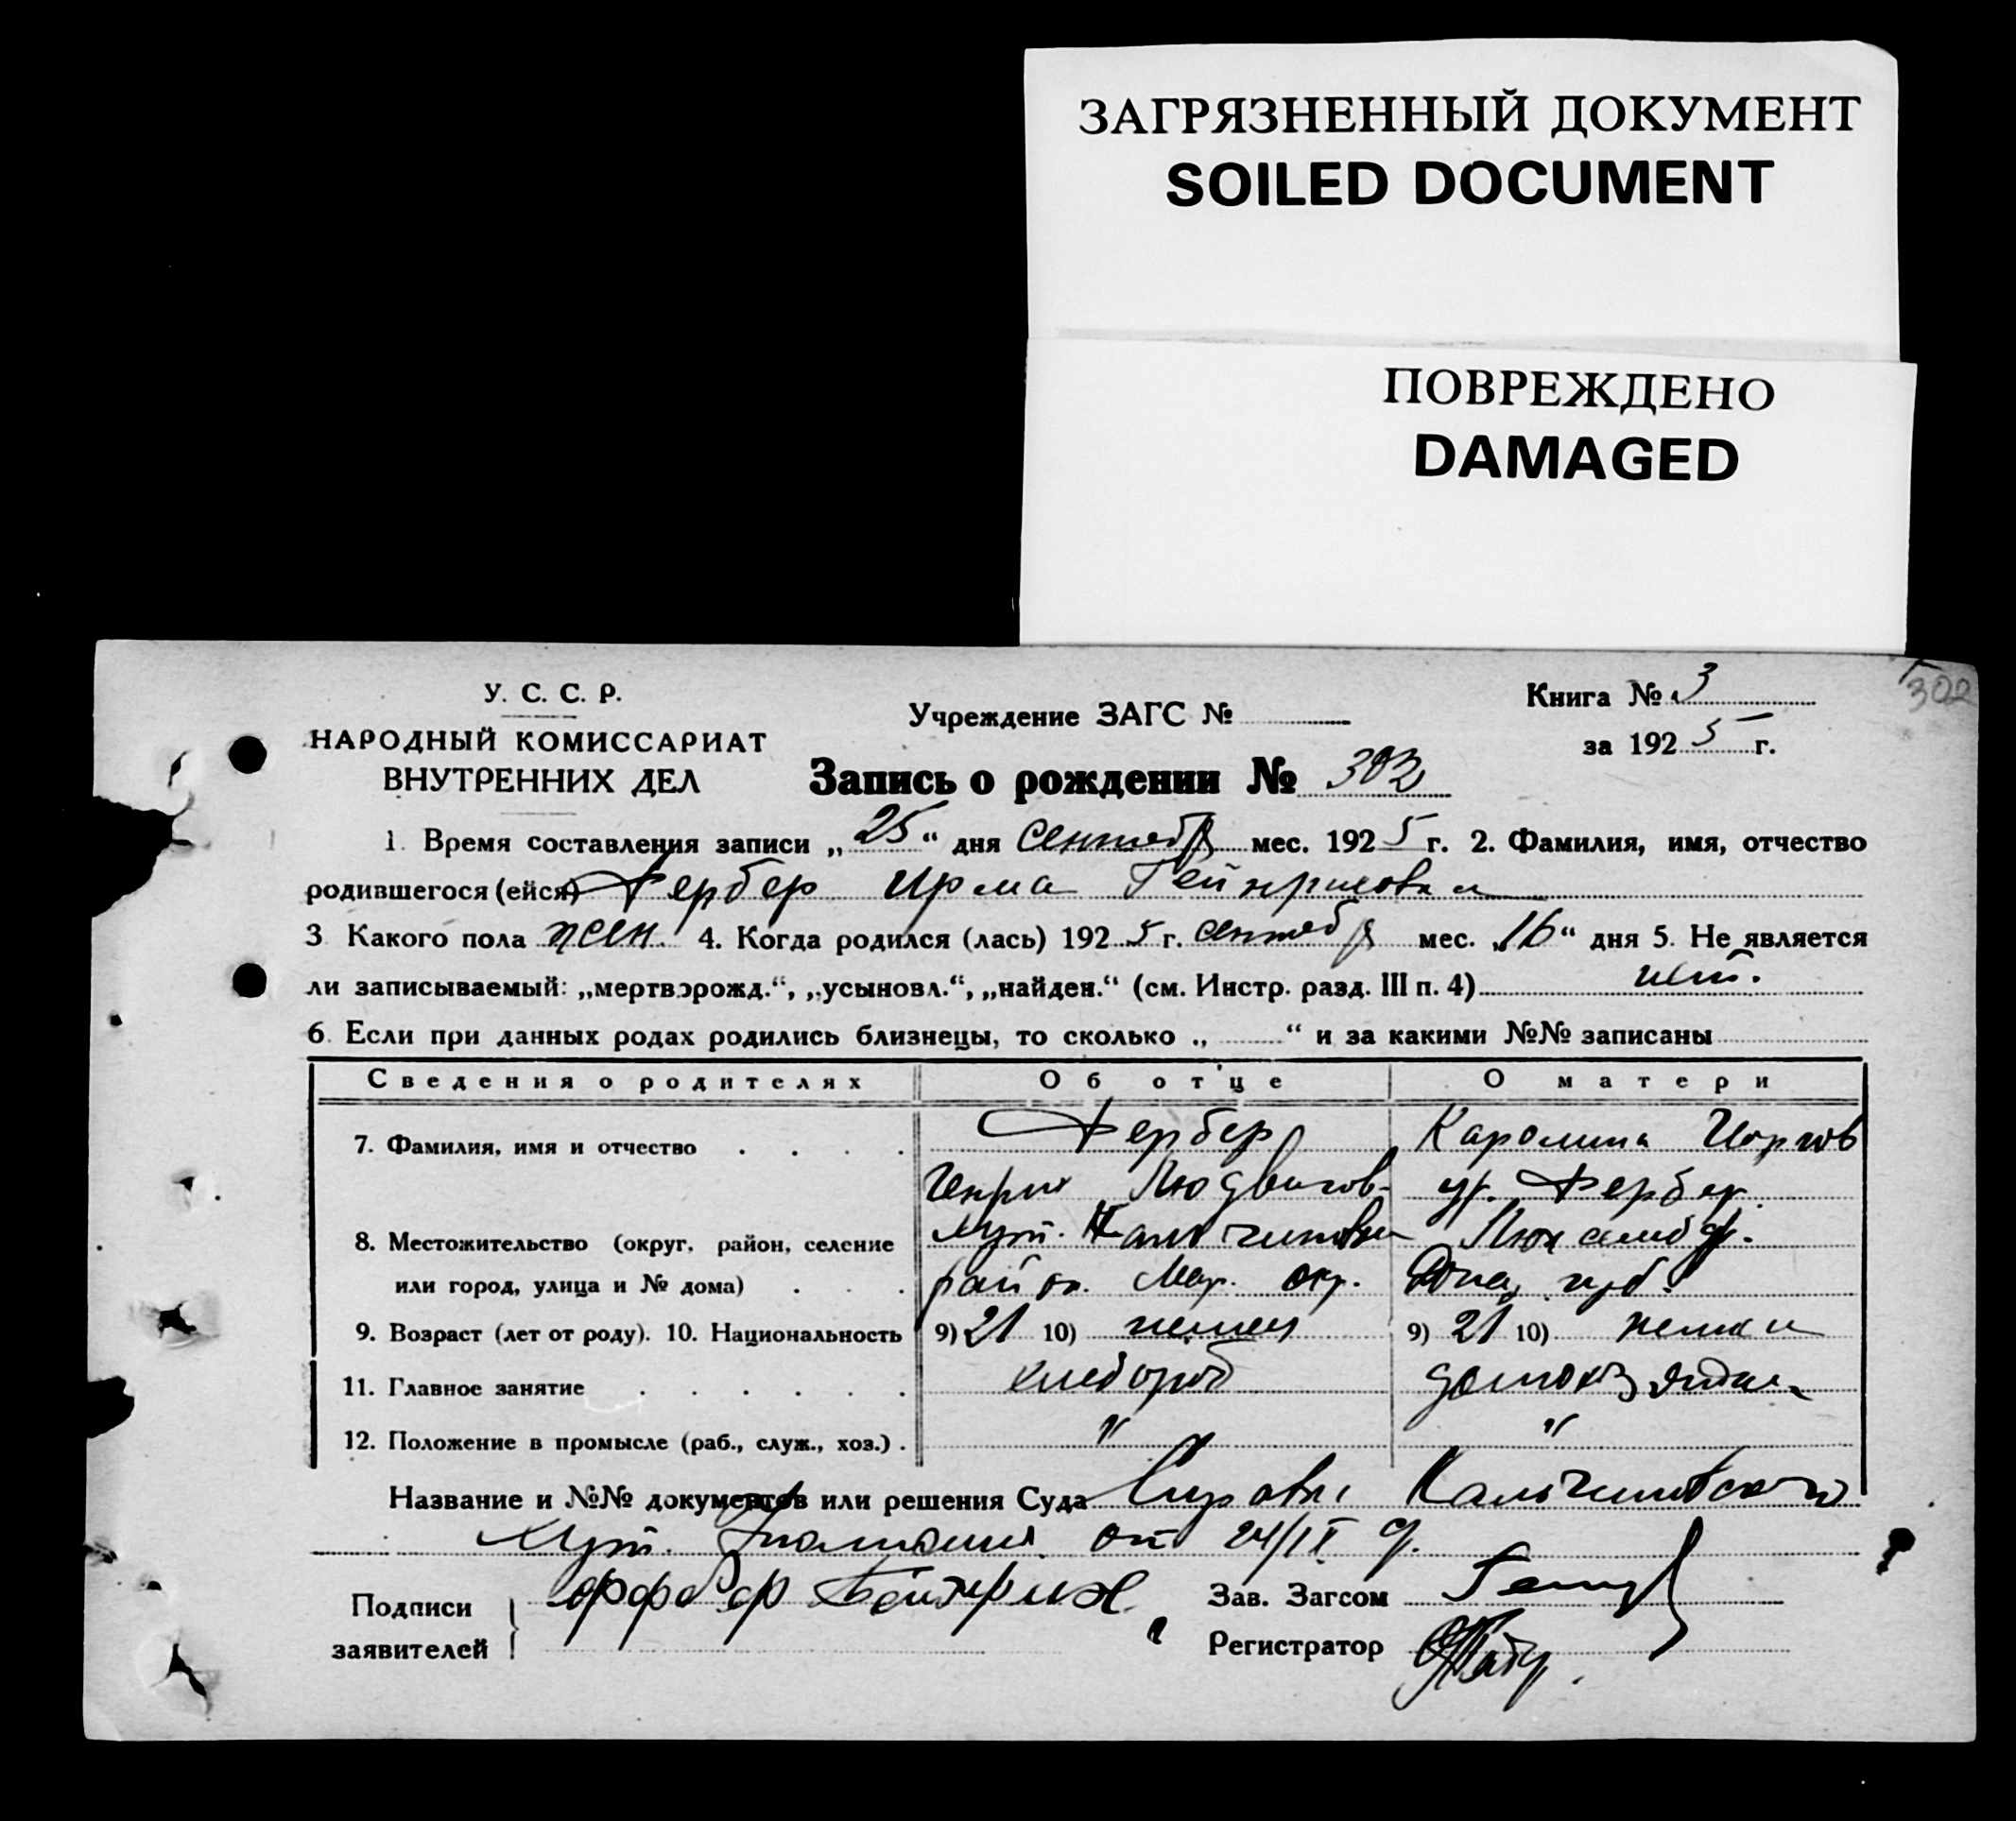 ЗАГРЯЗНЕННЫЙ ДОКУМЕНТ
SOILED DOCUMENT
ПОВРЕЖДЕНО
DAMAGED
302
У. С. С. Р.
НАРОДНЫЙ КОМИССАРИАТ
ВНУТРЕННИХ ДЕЛ
Учреждение ЗАГС №
Книга № 3
за 1925 г.
Запись о рождении № 302
1. Время составления записи „25“ дня сентябр мес. 1925 г. 2. Фамилия, имя, отчество
родившегося (ейся) Фербер Ирма Гейнриховна
3 Какого пола жен. 4. Когда родился (лась) 1925 г. сентябр мес. „16“ дня 5. Не является
ли записываемый: „мертворожд.“, „усыновл.“, „найден.“ (см. Инстр. разд. III п. 4) нет.
6. Если при данных родах родились близнецы, то сколько „ “ и за какими №№ записаны
Сведения о родителях Об отце О матери
7. Фамилия, имя и отчество Фербер Каролина
Генрих Людвигов. ур. Фербер
8. Местожительство (округ, район, селение хут.
или город, улица и № дома) район. Мар. окр. Дона губ.
9. Возраст (лет от роду). 10. Национальность 9) 21 10) немец 9) 21 10) немка
11. Главное занятие хлебороб домохозяйка
12. Положение в промысле (раб., служ., хоз.) " "
Название и №№ документов или решения Суда Кальчиновского
хут. от 24/IX
Подписи
заявителей
Зав. Загсом
Регистратор